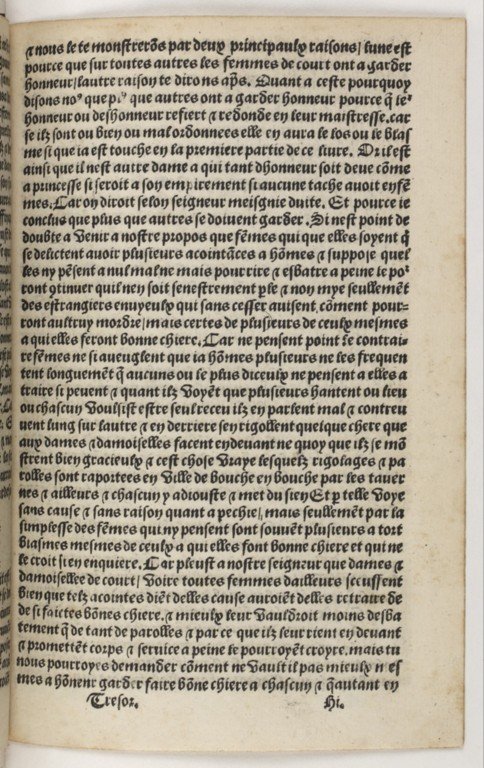 ⁊ nous le te monstrerõs par deux principaulx raisons/ lune est
pource que sur toutes autres les femmes de court ont a garder
honneur/ lautre raison te dirons aps̃. Quant a ceste pourquoy
disons noꝰ que plꝰ que autres ont a garder honneur pource q̃ leꝰ
honneur ou deshonneur refiert ⁊ redonde en leur maistresse. car
se ilz sont ou bien ou mal ordonnees elle en aura le los ou le blas
me si que ia est touche en la premiere partie de ce liure. Or il est
ainsi que il nest autre dame a qui tant dhonneur soit deue cõme
a princesse si seroit a son empirement si aucune tache auoit en fẽ
mes. Car on diroit selon seigneur meisgnie duite. Et pource ie
conclus que plus que autres se doiuent garder. Si nest point de
doubte a venir a nostre propos que fẽmes qui que elles soyent q̃
se delictent auoir plusieurs acointãces a hõmes ⁊ suppose quel
les ny pẽsent a nul mal ne mais pour rire ⁊ esbatre a peine le poꝰ
ront ꝯtinuer quil nen soit senestrement ꝑle ⁊ non mye seullemẽt
des estrangiers enuyeulx qui sans cesser auisent cõment pour-
ront aultruy mordre/ mais certes de plusieurs de ceulx mesmes
a qui elles feront bonne chiere. Car ne pensent point le contrai-
re fẽmes ne si aueuglent que ia hõmes plusieurs ne les frequen
tent longuement q̃ aucuns ou le plus diceulx ne pensent a elles a
traire si peuent ⁊ quant ilz voyẽt que plusieurs hantent ou lieu
ou chascun voulsist estre seul receu ilz en parlent mal ⁊ contreu
uent lung sur lautre ⁊ en derriere sen rigollent quelque chere que
aux dames ⁊ damoiselles facent en deuant ne quoy que ilz se mõ
strent bien gracieulx ⁊ cest chose vraye lesquelz rigolages ⁊ pa
rolles sont raportees en ville de bouche en bouche par les tauer
nes ⁊ ailleurs ⁊ chascun y adiouste ⁊ met du sien Et ꝑ telle voye
sans cause ⁊ sans raison quant a pechie/ mais seullemẽt par la
simplesse des fẽmes qui ny pensent sont souuẽt plusieurs a tort
blasmes mesmes de ceulx a qui elles font bonne chiere et qui ne
le croit si en enquiere. Car pleust a nostre seigneur que dames ⁊
damoiselles de court/ voire toutes femmes dailleurs sceussent
bien que telz acointes diẽt delles cause auroiẽt delles retraire de
de si faictes bõnes chiere. ⁊ mieulx leur vauldroit moins desba
tement q̃ de tant de parolles ⁊ par ce que ilz leur rient en deuant
⁊ promettẽt corps ⁊ seruice a peine le pourroyẽt croyre. mais tu
nous pourroyes demander cõment ne vault il pas mieulx
mes a hõneur garder faire bõne chiere a chascun ⁊ q̃ autant en
Tresor. Hi.